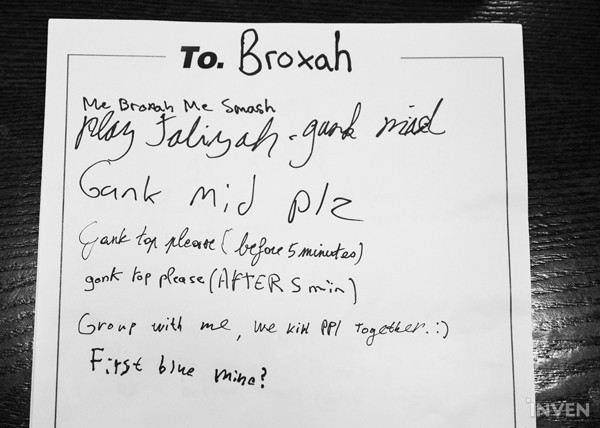 To. Broxah
Me Broxah Me Smash
play Taliyah - gank mid
Gank mid plz
Gank top please (before 5 minutes)
gank top please (AFTER 5 min)
Group with me, we kill PPl together. :)
First blue mine?
INVEN